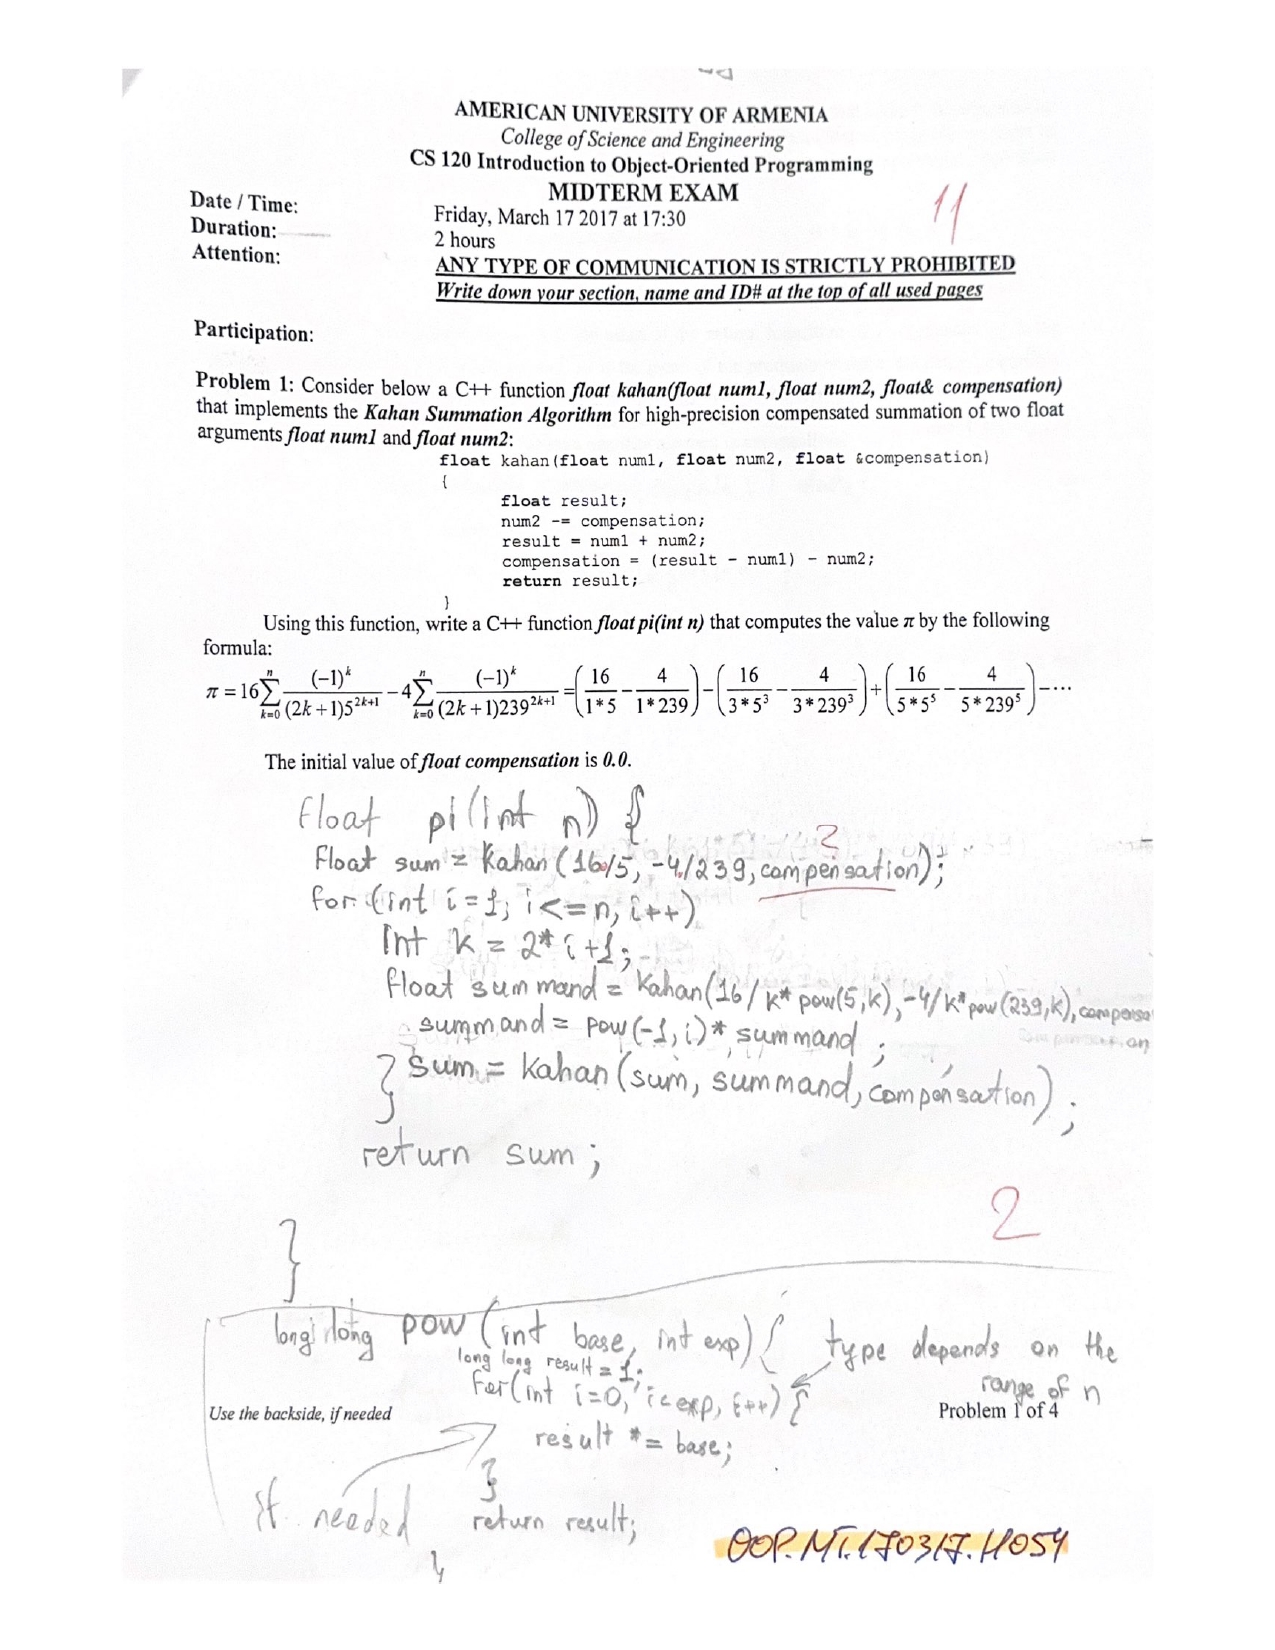 AMERICAN UNIVERSITY OF ARMENIA
College of Science and Engineering
CS 120 Introduction to Object-Oriented Programming
MIDTERM EXAM
11
Date / Time: Friday, March 17 2017 at 17:30
Duration: 2 hours
Attention: ANY TYPE OF COMMUNICATION IS STRICTLY PROHIBITED
Write down your section, name and ID# at the top of all used pages
Participation:
Problem 1: Consider below a C++ function float kahan(float num1, float num2, float& compensation)
that implements the Kahan Summation Algorithm for high-precision compensated summation of two float
arguments float num1 and float num2:
float kahan(float num1, float num2, float &compensation)
{
float result;
num2 -= compensation;
result = num1 + num2;
compensation = (result - num1) - num2;
return result;
}
Using this function, write a C++ function float pi(int n) that computes the value π by the following
formula:
π = 16 ∑_{k=0}^{n} (-1)^k / ((2k+1)5^{2k+1}) - 4 ∑_{k=0}^{n} (-1)^k / ((2k+1)239^{2k+1}) = (16/(1*5) - 4/(1*239)) - (16/(3*5^3) - 4/(3*239^3)) + (16/(5*5^5) - 4/(5*239^5)) - ⋯
The initial value of float compensation is 0.0.
float pi(int n) {
?
float sum = kahan(16/5, -4/239, compensation);
for (int i = 1; i <= n, i++)
int k = 2* i +1;
float summand = kahan(16/ k* pow(5,k), -4/k* pow(239,k), compensa
summand = pow(-1, i)* summand ;
} sum = kahan (sum, summand, compensation) ;
return sum ;
2
}
long long pow (int base, int exp) { type depends on the
long long result = 1; range of n
for(int i=0, i< exp, i++) {
Use the backside, if needed Problem 1 of 4
result *= base;
}
if needed return result;
}
OOP.MT.170317.H054